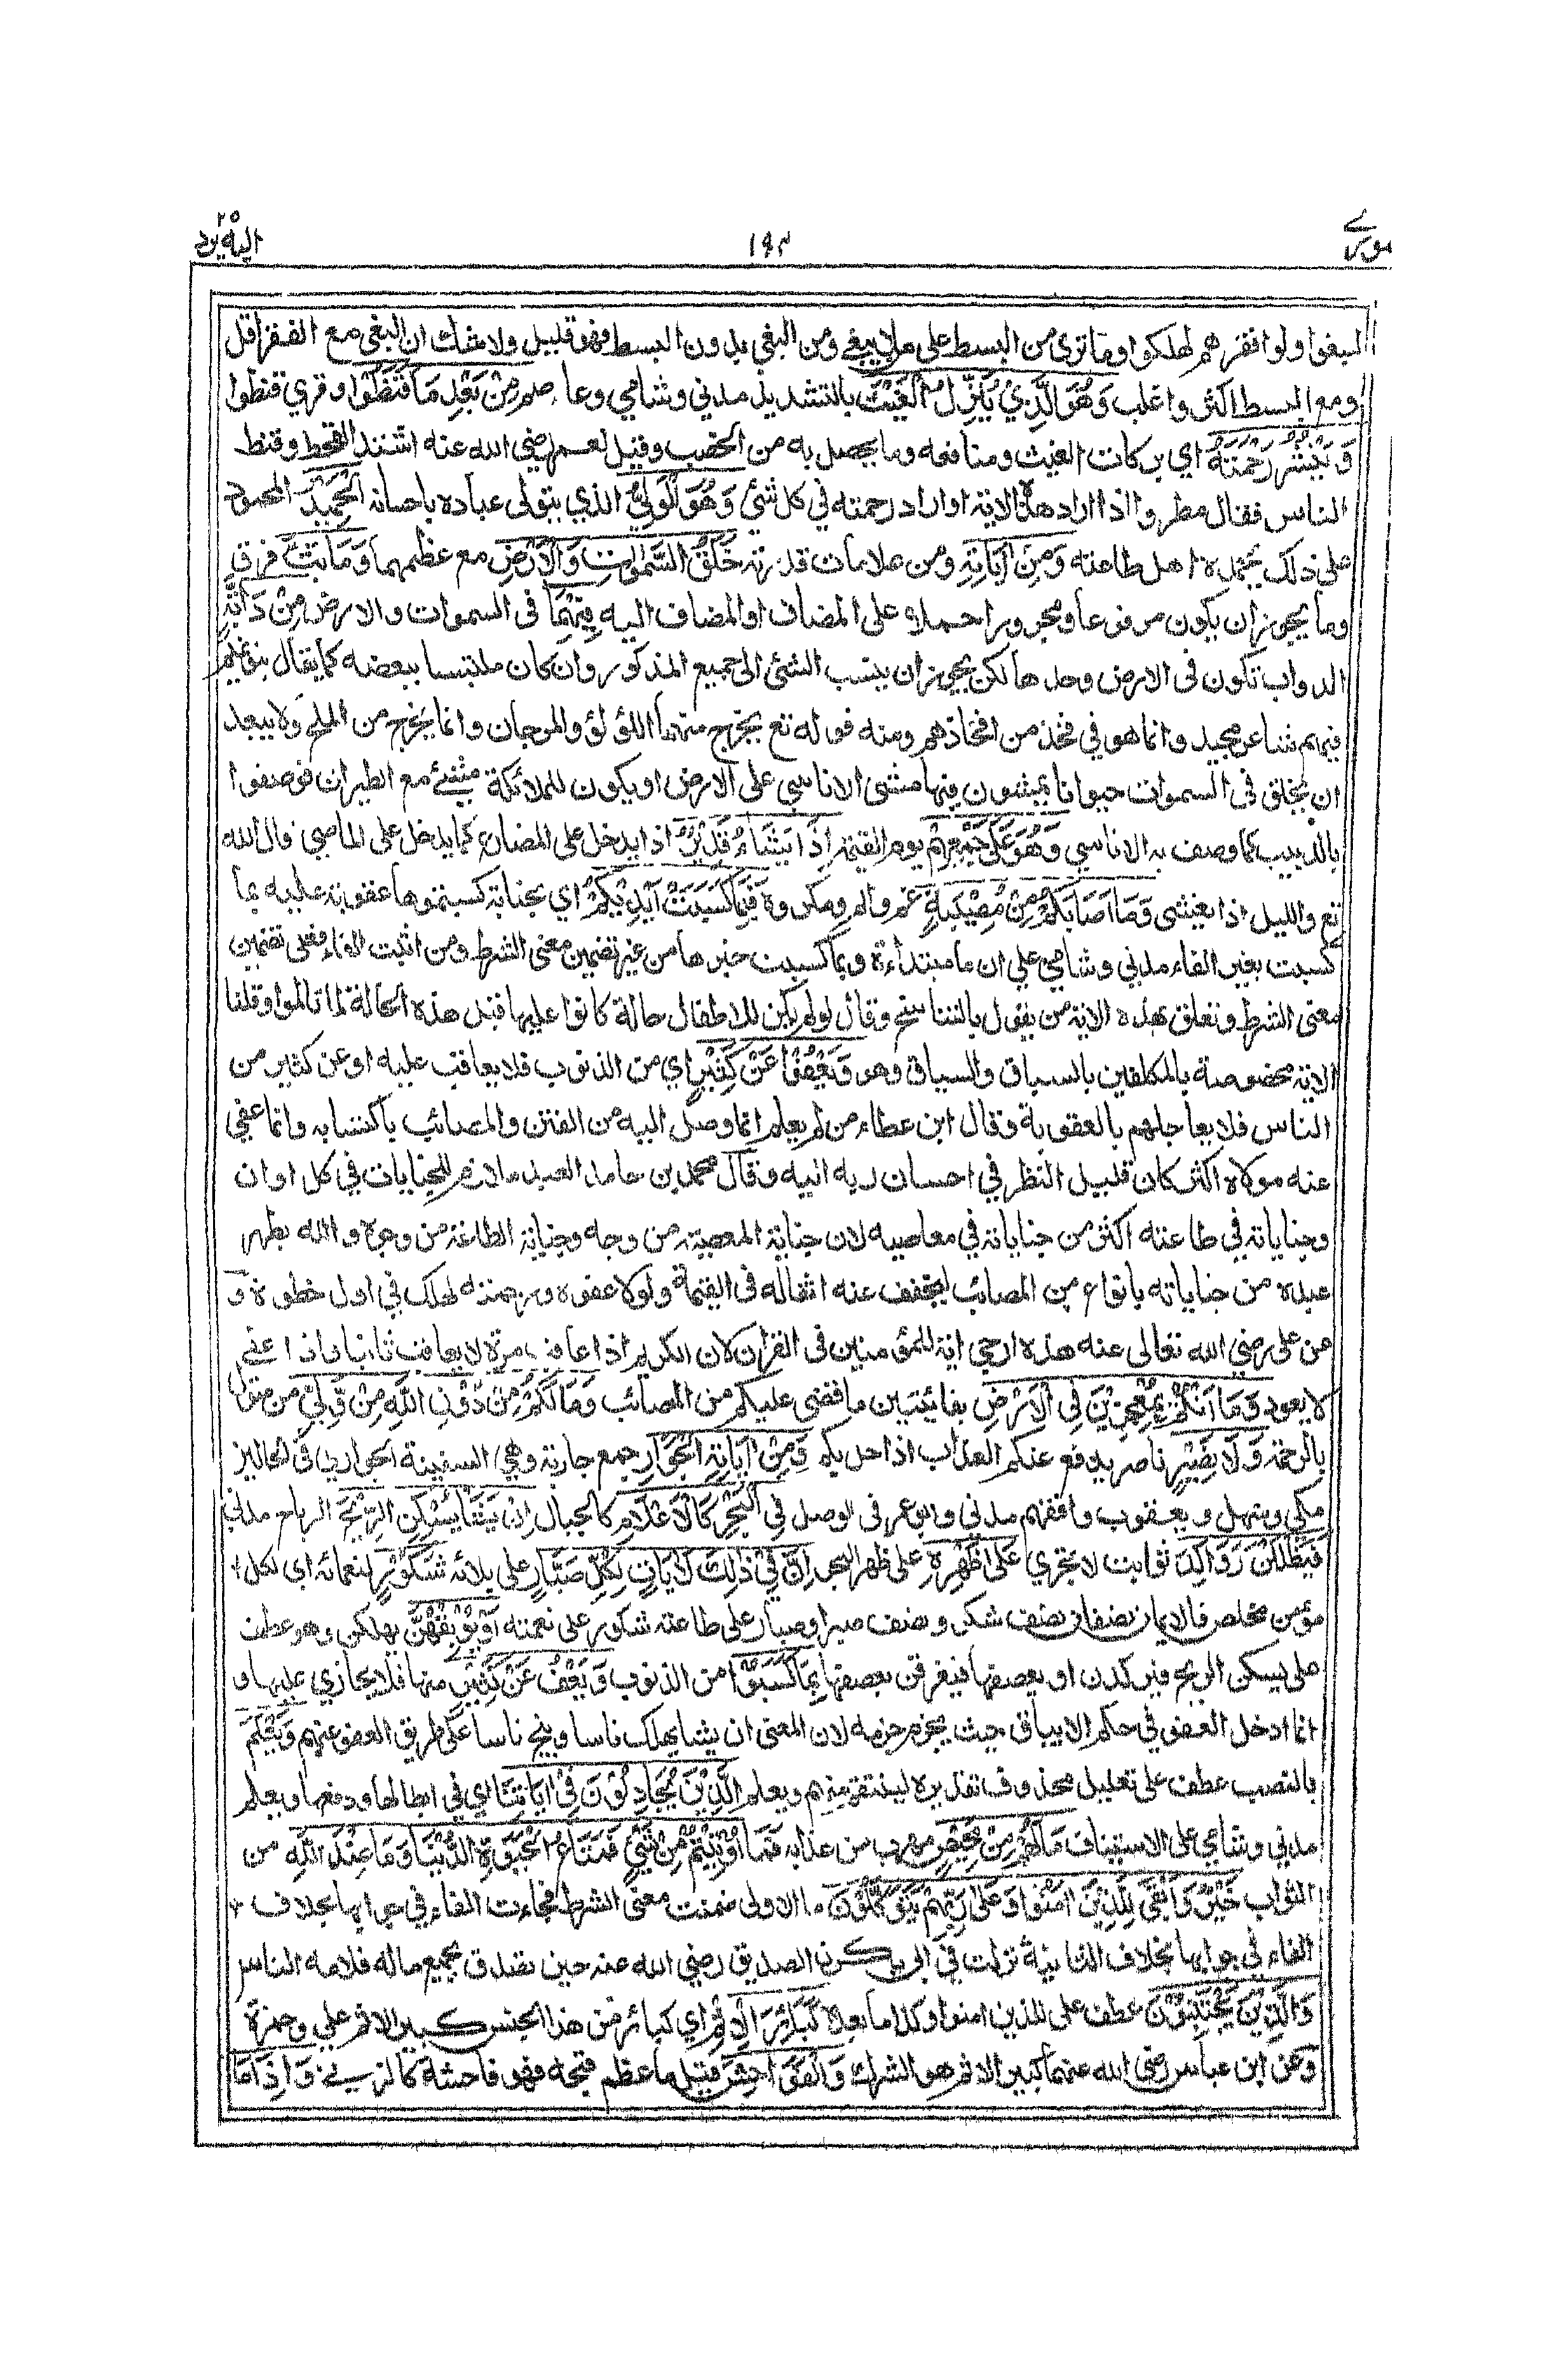 شورى
١٩٣
اليه يرد ٢٥
لبغوا ولو افقرهم لهلكوا وما ترى من البسط على من لا يبغي ومن البغي بدون البسط فهو قليل ولا شك ان البغي مع الفقر اقل
ومع البسط اكثر واغلب وَهُوَ الَّذِيْ يُنَزِّلُ الْغَيْثَ بالتشديد مدني وشامي وعاصم مِنْ بَعْدِ مَا قَنَطُوْا وقرئ قنطوا
وَيَنْشُرُ رَحْمَتَهٗ اي بركات الغيث ومنافعه وما يحصل به من الخصب وقيل لعمر رضي الله عنه اشتد القحط وقنط
الناس فقال مطروا اذا اراد هذه الاية او اراد رحمته في كل شئ وَهُوَ الْوَلِيُّ الذي يتولى عباده باحسانه الْحَمِيْدُ المحمود
على ذلك يحمده اهل طاعته وَمِنْ اٰيَاتِهٖ ومن علامات قدرته خَلْقُ السَّمٰوٰتِ وَالْاَرْضِ مع عظمهما وَمَا بَثَّ فرق
وما يجوز ان يكون مرفوعا ومجرورا حملا على المضاف او المضاف اليه فِيْهِمَا في السموات والارض مِنْ دَابَّةٍ
الدواب تكون في الارض وحدها لكن يجوز ان ينسب الشئ الى جميع المذكور وان كان ملتبسا ببعضه كما يقال بنو تميم
فيهم شاعر مجيد وانما هو في فخذ من افخاذهم ومنه قوله تع يخرج منهما اللؤلؤ والمرجان وانما يخرج من الملح ولا يبعد
ان يخلق في السموات حيوانا يمشون فيها مشى الاناسي على الارض او يكون للملائكة مشي مع الطيران فوصفوا
بالدبيب كما وصف به الاناسي وَهُوَ عَلٰى جَمْعِهِمْ يوم القيمة اِذَا يَشَاءُ قَدِيْرٌ اذا يدخل على المضارع كما يدخل على الماضي قال الله
تع والليل اذا يغشى وَمَا اَصَابَكُمْ مِنْ مُصِيْبَةٍ غم والم ومكروه فَبِمَا كَسَبَتْ اَيْدِيْكُمْ اي بجناية كسبتموها عقوبة عليه بما
كسبت بغير الفاء مدني وشامي على ان ما مبتدأة وبما كسبت خبرها من غير تضمين معنى الشرط ومن اثبت الفاء فعلى تضمين
معنى الشرط وتعلق بهذه الاية من يقول بالتناسخ وقال لو لم يكن للاطفال حالة كانوا عليها قبل هذه الحالة لما تالموا وقلنا
الاية مخصوصة بالمكلفين بالسباق والسياق وهو وَيَعْفُوْا عَنْ كَثِيْرٍ اي من الذنوب فلا يعاقب عليه او عن كثير من
الناس فلا يعاجلهم بالعقوبة وقال ابن عطاء من لم يعلم انما وصل اليه من الفتن والمصائب باكتسابه وانما عفى
عنه مولاه اكثر كان قليل النظر في احسان ربه اليه وقال محمد بن حامد العبد ملازم للجنايات في كل اوان
وجناياته في طاعته اكثر من جناياته في معاصيه لان جناية المعصية من وجه وجناية الطاعة من وجوه والله يطهر
عبده من جناياته بانواع من المصائب ليخفف عنه اثقاله في القيمة ولولا عفوه ورحمته لهلك في اول خطوة و
عن علي رضي الله تعالى عنه هذه ارجى اية للمؤمنين في القران لان الكريم اذا عاقب مرة لا يعاقب ثانيا واذا عفي
لا يعود وَمَا اَنْتُمْ بِمُعْجِزِيْنَ فِي الْاَرْضِ بفائتين ما قضى عليكم من المصائب وَمَا لَكُمْ مِنْ دُوْنِ اللّٰهِ مِنْ وَّلِيٍّ من متول
بالرحمة وَلَا نَصِيْرٍ ناصر يدفع عنكم العذاب اذا حل بكم وَمِنْ اٰيَاتِهِ الْجَوَارِ جمع جارية وهي السفينة الجواري في الحالين
مكي وسهل ويعقوب وافقهم مدني وابو عمر في الوصل فِي الْبَحْرِ كَالْاَعْلَامِ كالجبال اِنْ يَشَأْ يُسْكِنِ الرِّيْحَ الرياح مدني
فَيَظْلَلْنَ رَوَاكِدَ ثوابت لا تجري عَلٰى ظَهْرِهٖ على ظهر البحر اِنَّ فِيْ ذٰلِكَ لَاٰيَاتٍ لِكُلِّ صَبَّارٍ على بلائه شَكُوْرٍ لنعمائه اى لكل
مؤمن مخلص فالايمان نصفان نصف شكر ونصف صبر او صبار على طاعته شكور على نعمته اَوْ يُوْبِقْهُنَّ يهلكهن وهو عطف
على يسكن الريح فيركدن او يعصفها فيغرقن بعصفها بِمَا كَسَبُوْا من الذنوب وَيَعْفُ عَنْ كَثِيْرٍ منها فلا يجازي عليها و
انما ادخل العفو في حكم الايباق حيث جزم جزمه لان المعنى ان يشا يهلك ناسا وينج ناسا على طريق العفو عنهم وَيَعْلَمَ
بالنصب عطف على تعليل محذوف تقديره لينتقم منهم ويعلم الَّذِيْنَ يُجَادِلُوْنَ فِيْ اٰيَاتِنَا اي في ابطالها ودفعها ويعلم
مدني وشامي على الاستيناف مَا لَهُمْ مِنْ مَحِيْصٍ مهرب من عذابه فَمَا اُوْتِيْتُمْ مِنْ شَيْءٍ فَمَتَاعُ الْحَيٰوةِ الدُّنْيَا وَمَا عِنْدَ اللّٰهِ من
الثواب خَيْرٌ وَاَبْقٰى لِلَّذِيْنَ اٰمَنُوْا وَعَلٰى رَبِّهِمْ يَتَوَكَّلُوْنَ ما الاولى ضمنت معنى الشرط فجاءت الفاء في جوابها بخلاف
الفاء في جوابها بخلاف الثانية نزلت في ابي بكر الصديق رضي الله عنه حين تصدق بجميع ماله فلامه الناس
وَالَّذِيْنَ يَجْتَنِبُوْنَ عطف على للذين امنوا وكذا ما بعده كَبٰئِرَ الْاِثْمِ اي كبائر من هذا الجنس كبير الاثم علي وحمزة
وعن ابن عباس رضى الله عنهما كبير الاثم هو الشرك وَالْفَوَاحِشَ قيل ما عظم قبحه فهو فاحشة كالزنى وَاِذَا مَا